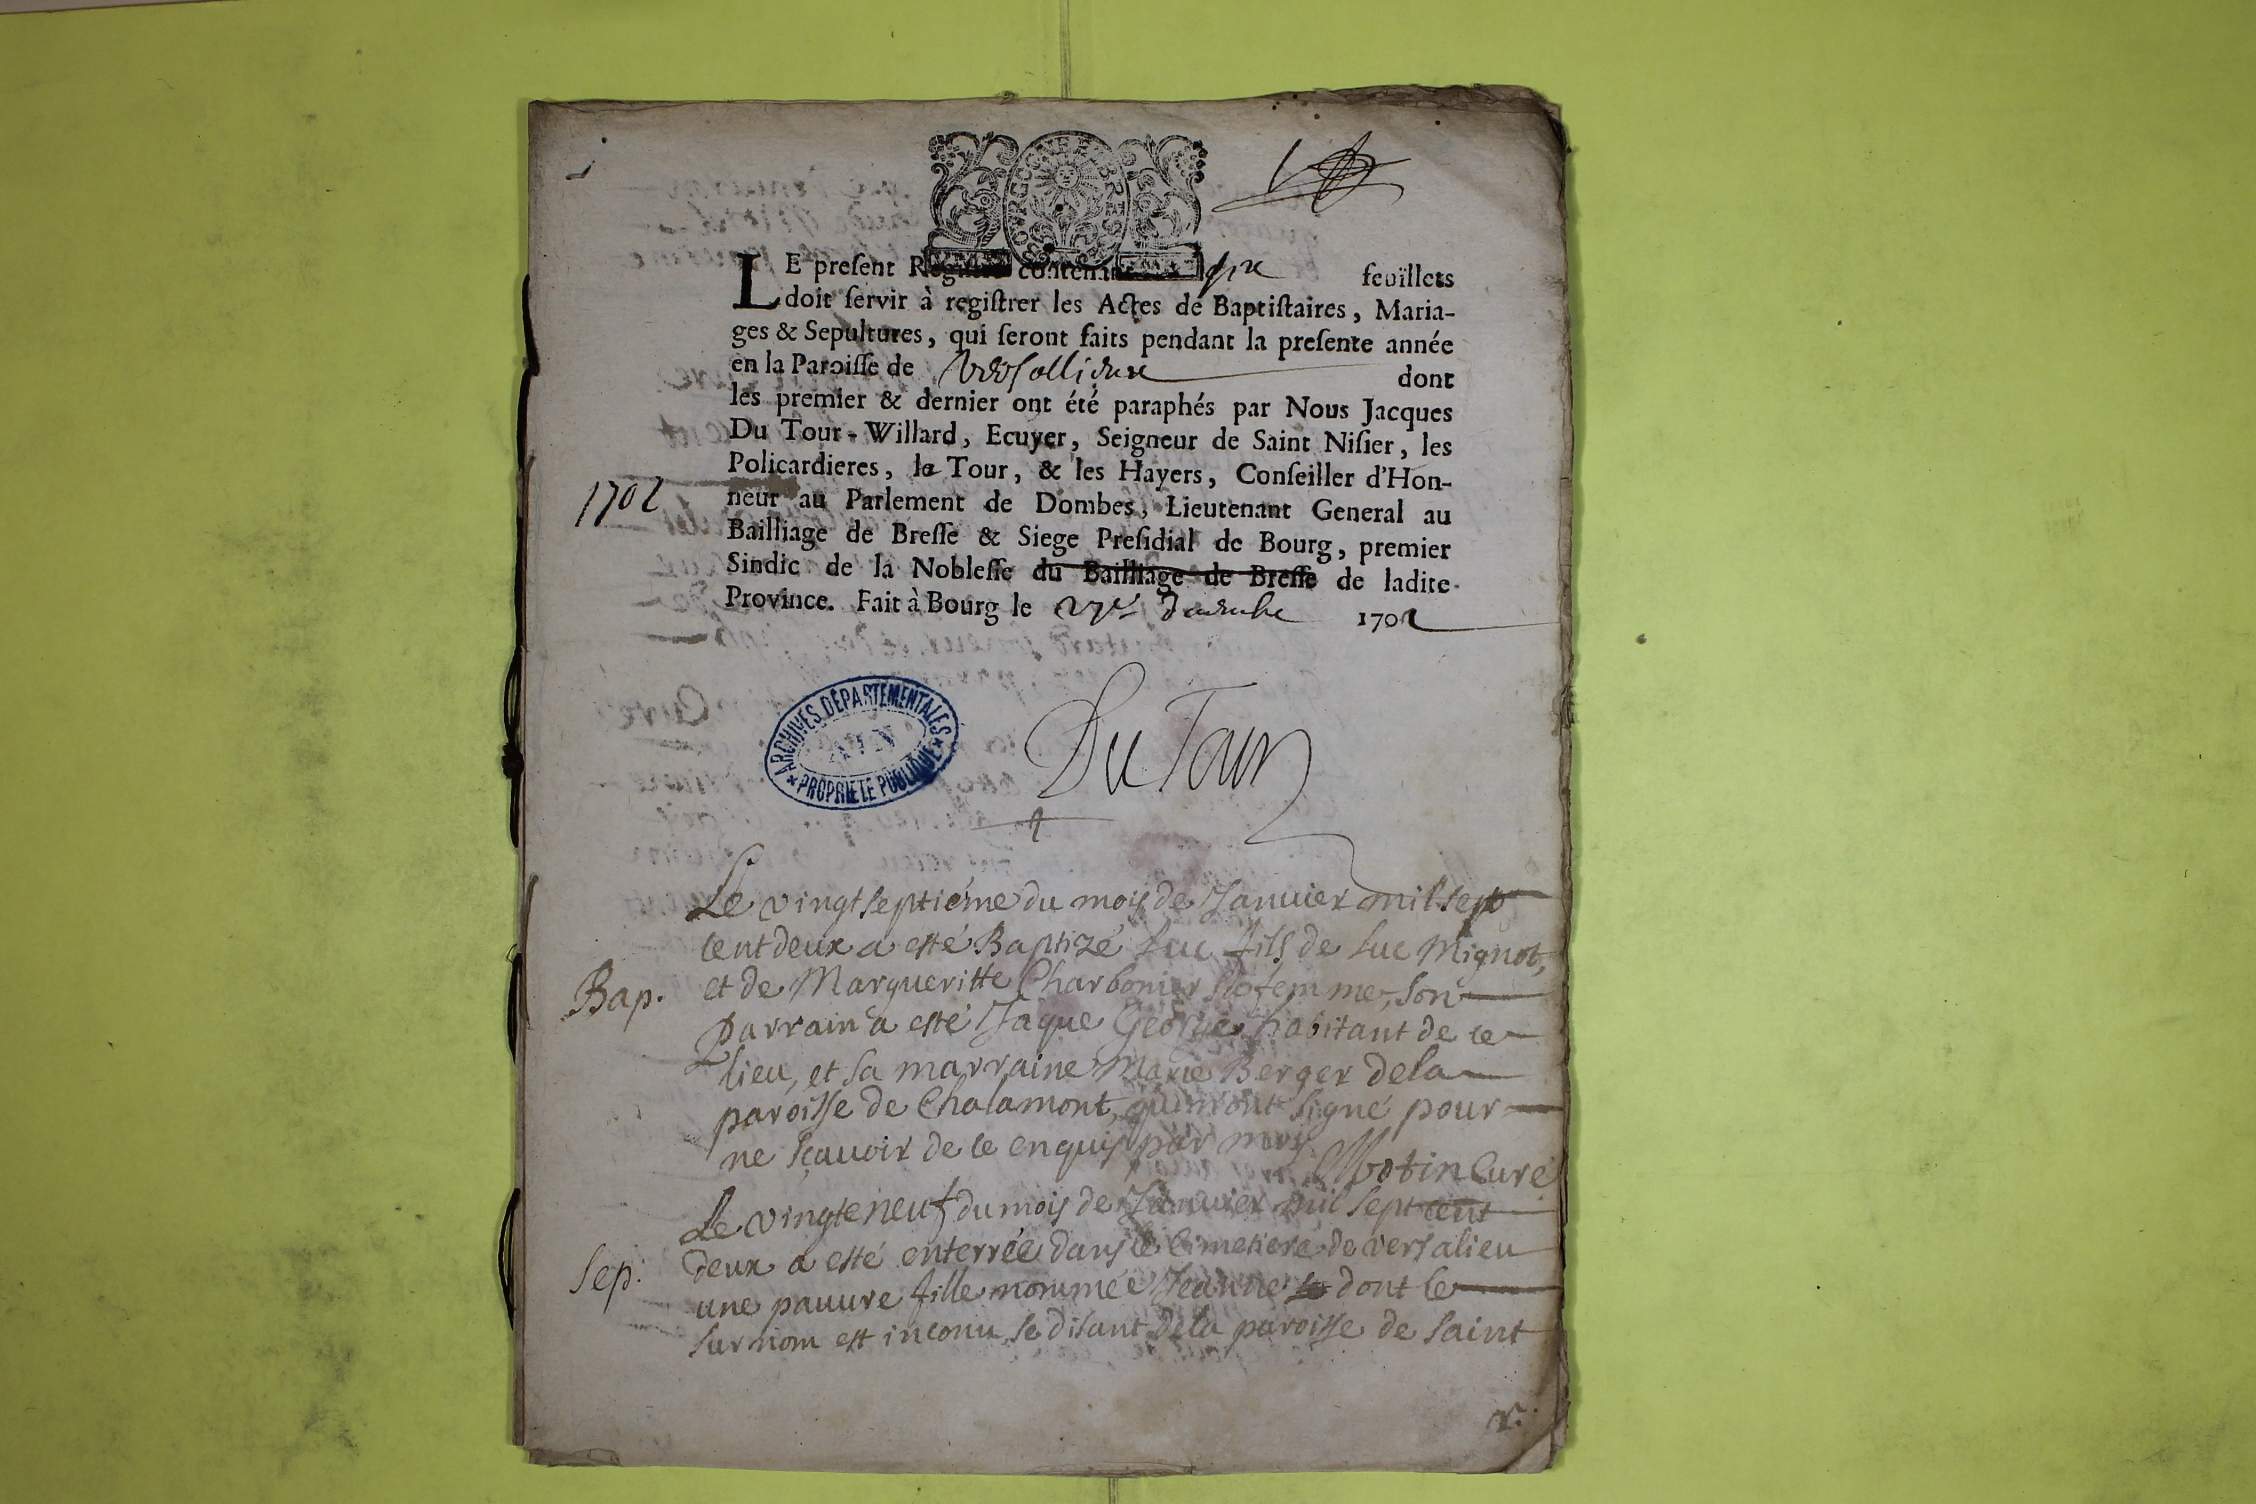 LE present Registre contenant feüillets
doit servir à registrer les Actes de Baptistaires, Maria-
ges & Sepultures, qui seront faits pendant la presente année
en la Paroisse de Versallieux dont
les premier & dernier ont été paraphés par Nous Jacques
Du Tour-Willard, Ecuyer, Seigneur de Saint Nisier, les
Policardieres, la Tour, & les Hayers, Conseiller d'Hon-
1702
neur au Parlement de Dombes, Lieutenant General au
Bailliage de Bresse & Siege Presidial de Bourg, premier
Sindic de la Noblesse du Bailliage de Bresse de ladite
Province. Fait à Bourg le 1702
ARCHIVES DÉPARTEMENTALES
AIN
PROPRIÉTÉ PUBLIQUE
Du Tour
Le vingtseptiéme du mois de Januier mil sept
cent deux a esté Baptizé Luc fils de Luc Mignot,
Bap. et de Margueritte Charbonier sa femme, son
parrain a esté Jaque George habitant de ce
lieu, et sa marraine Marie Berger dela
paroisse de Chalamont, qui n'ont signé pour
ne sçauoir de ce enquis par moy.
Motin Curé
Le vingteneuf du mois de Januier mil sept cent
deux a esté enterrée dans le Cimetiere de versalieu
Sep. une pauure fille nommée Jeanne dont le
surnom est inconu, se disant dela paroisse de Saint